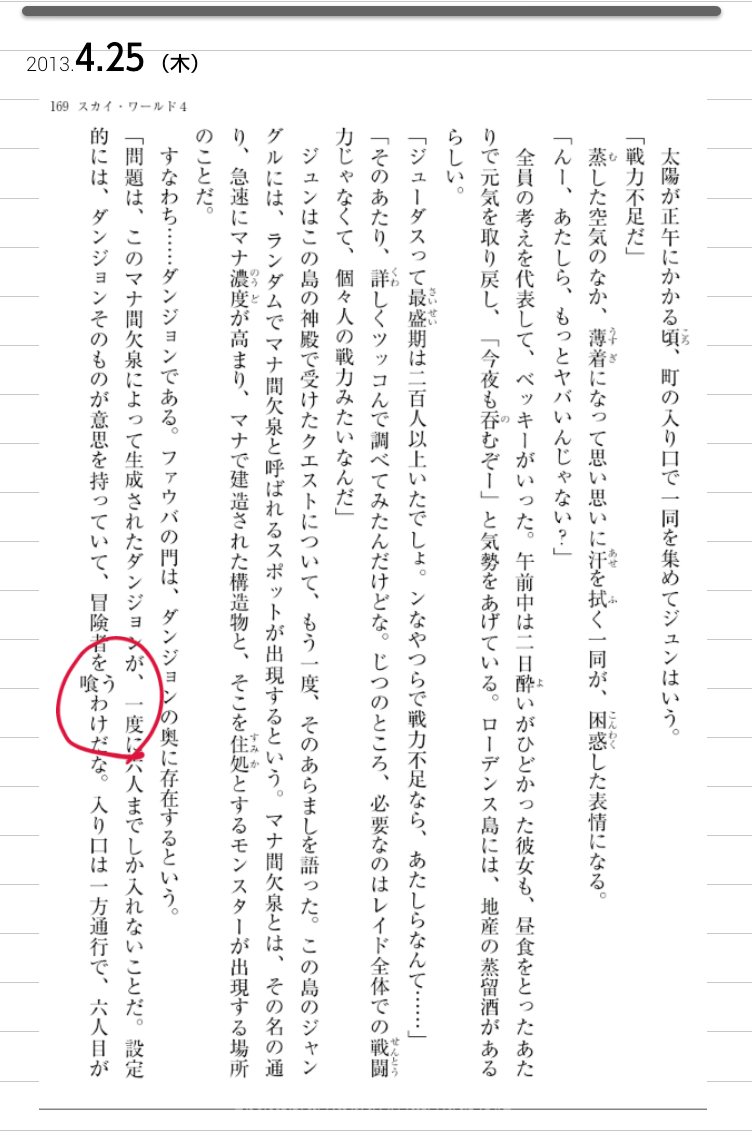 2013.4.25（木）
169 スカイ・ワールド4
太陽が正午にかかる頃、町の入り口で一同を集めてジュンはいう。
「戦力不足だ」
蒸した空気のなか、薄着になって思い思いに汗を拭く一同が、困惑した表情になる。
「んー、あたしら、もっとヤバいんじゃない？」
全員の考えを代表して、ベッキーがいった。午前中は二日酔いがひどかった彼女も、昼食をとったあた
りで元気を取り戻し、「今夜も呑むぞー」と気勢をあげている。ローデンス島には、地産の蒸留酒がある
らしい。
「ジューダスって最盛期は二百人以上いたでしょ。ンなやつらで戦力不足なら、あたしらなんて……」
「そのあたり、詳しくツッコんで調べてみたんだけどな。じつのところ、必要なのはレイド全体での戦闘
力じゃなくて、個々人の戦力みたいなんだ」
ジュンはこの島の神殿で受けたクエストについて、もう一度、そのあらましを語った。この島のジャン
グルには、ランダムでマナ間欠泉と呼ばれるスポットが出現するという。マナ間欠泉とは、その名の通
り、急速にマナ濃度が高まり、マナで建造された構造物と、そこを住処とするモンスターが出現する場所
のことだ。
すなわち……ダンジョンである。ファウバの門は、ダンジョンの奥に存在するという。
「問題は、このマナ間欠泉によって生成されたダンジョンが、一度に六人までしか入れないことだ。設定
的には、ダンジョンそのものが意思を持っていて、冒険者を喰うわけだな。入り口は一方通行で、六人目が